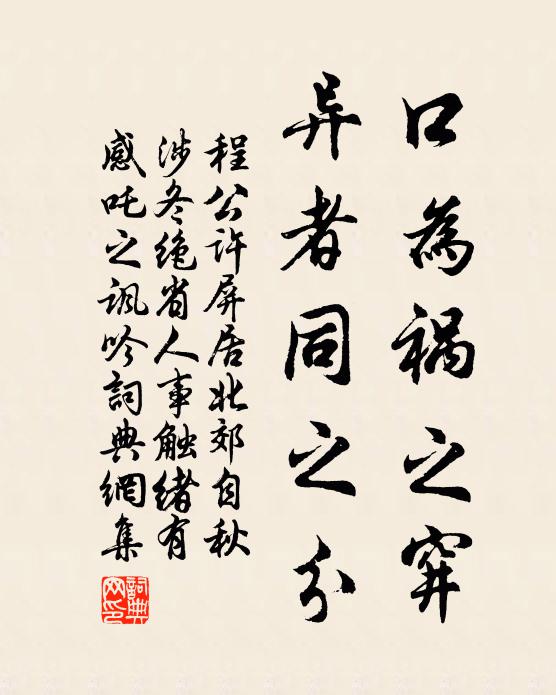 口為禍之穽
异者同之分
程公许屏居北郊自秋
涉冬绝省人事触绪有
感吒之讽吟詞典網集
詞典网印